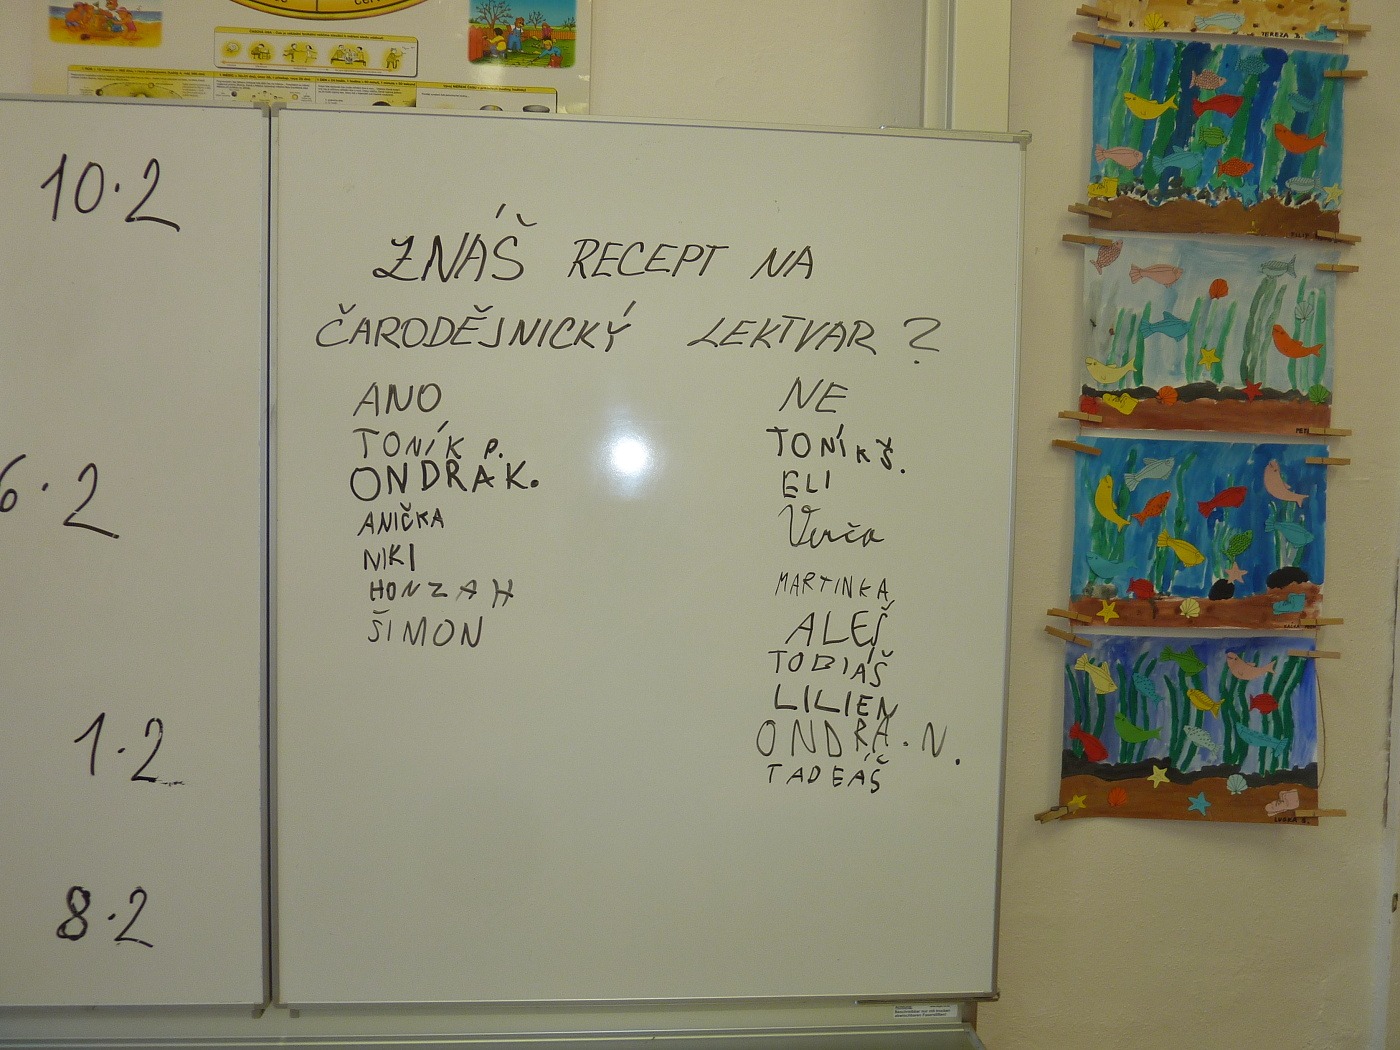 10·2
6·2
1·2
8·2
ZNÁŠ RECEPT NA
ČARODĚJNICKÝ LEKTVAR?
ANO
TONÍK P.
ONDRA K.
ANIČKA
NIKI
HONZA H
ŠIMON
NE
TONÍK Š.
ELI
Verča
MARTINKA
ALEŠ
TOBIÁŠ
LILIEN
ONDRA.N.
TADEÁŠ